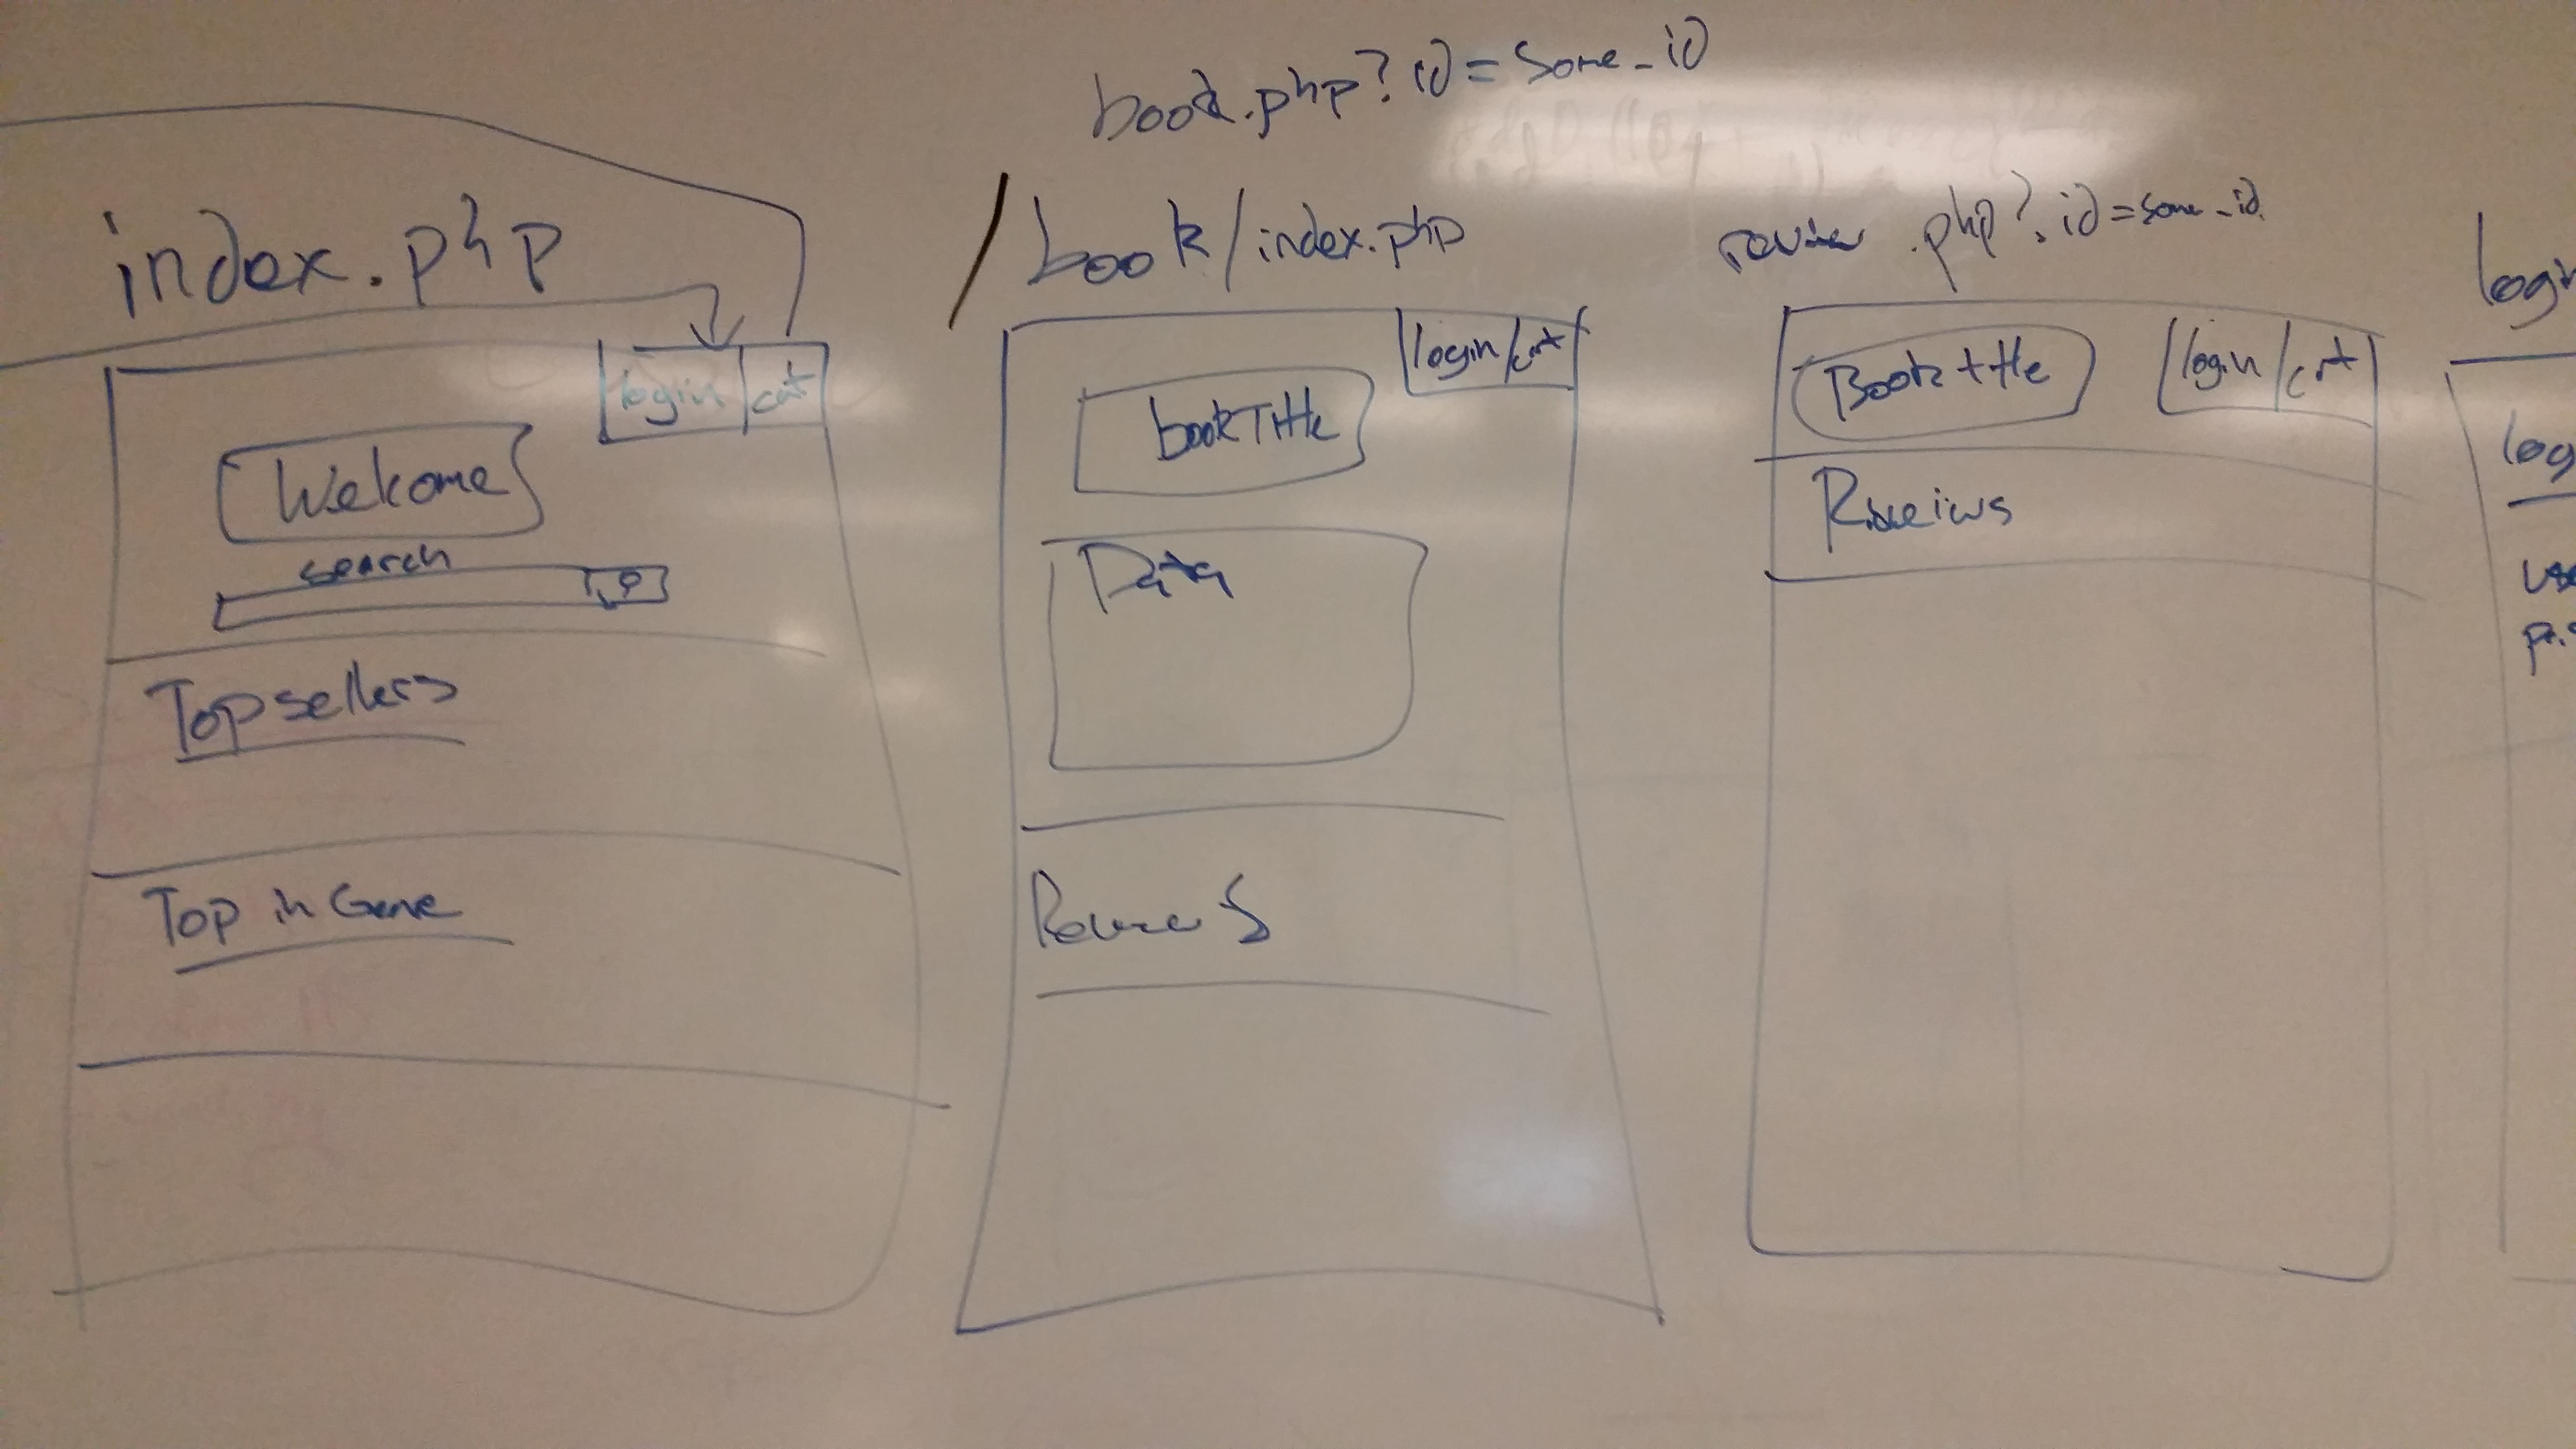 book.php?id=some_id
index.php
login cart
Welcome
search
Top sellers
Top in Genre
/book/index.php
login/cart
bookTitle
Data
Reviews
review.php?id=some_id
Book title
login/cart
Reveiws
login
log
use